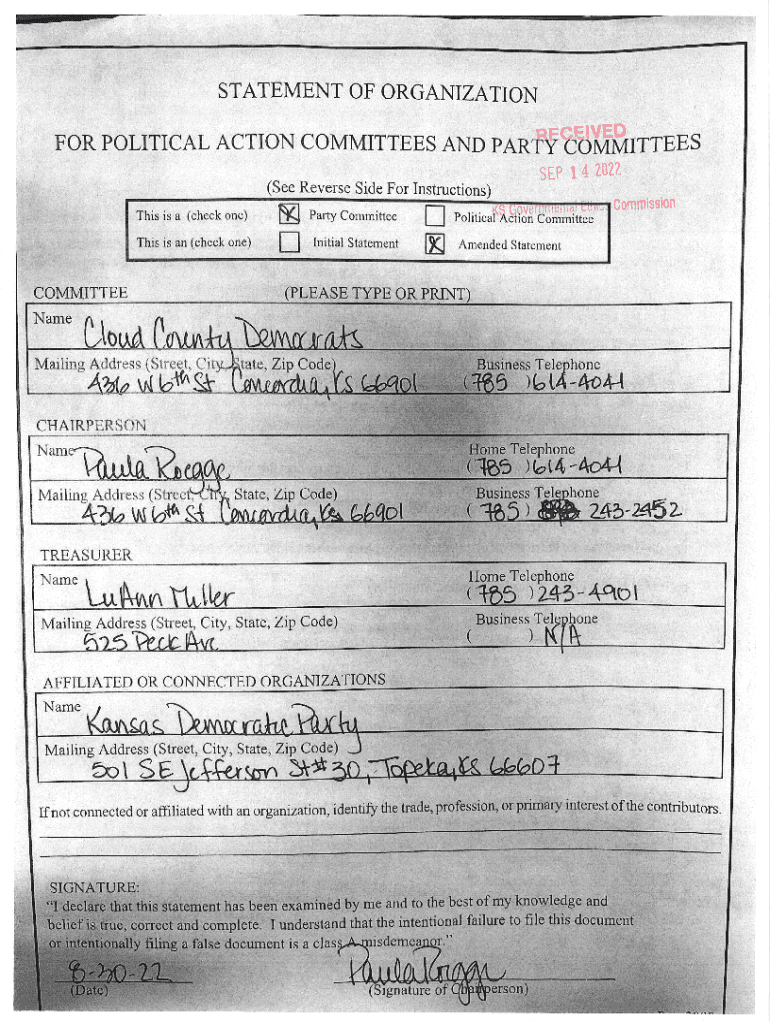 STATEMENT OF ORGANIZATION
FOR POLITICAL ACTION COMMITTEES AND PARTY COMMITTEES
RECEIVED
SEP 14 2022
KS Governmental Ethics Commission
(See Reverse Side For Instructions)
This is a (check one) Party Committee Political Action Committee
This is an (check one) Initial Statement Amended Statement
COMMITTEE (PLEASE TYPE OR PRINT)
Name Cloud County Democrats
Mailing Address (Street, City, State, Zip Code) Business Telephone
436 W 6th St Concordia, Ks 66901 (785 )614-4041
CHAIRPERSON
Name Paula Roegge Home Telephone
(785 )614-4041
Mailing Address (Street, City, State, Zip Code) Business Telephone
436 W 6th St Concordia, Ks 66901 (785) 243-2452
TREASURER
Name LuAnn Miller Home Telephone
(785 )243-4901
Mailing Address (Street, City, State, Zip Code) Business Telephone
525 Peck Ave ( ) N/A
AFFILIATED OR CONNECTED ORGANIZATIONS
Name Kansas Democratic Party
Mailing Address (Street, City, State, Zip Code)
501 SE Jefferson St #30, Topeka, KS 66607
If not connected or affiliated with an organization, identify the trade, profession, or primary interest of the contributors.
SIGNATURE:
"I declare that this statement has been examined by me and to the best of my knowledge and
belief is true, correct and complete. I understand that the intentional failure to file this document
or intentionally filing a false document is a class A misdemeanor."
8-30-22 Paula Roegge
(Date) (Signature of Chairperson)